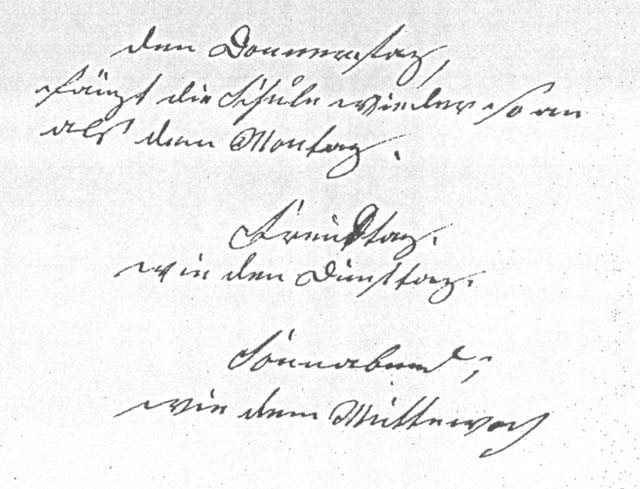 den Donnerstag,
fängt die Schule wieder so an
als dem Montag.
Freudtag.
wie den Dinsttag.
Sonnabend,
wie dem Mittewoch